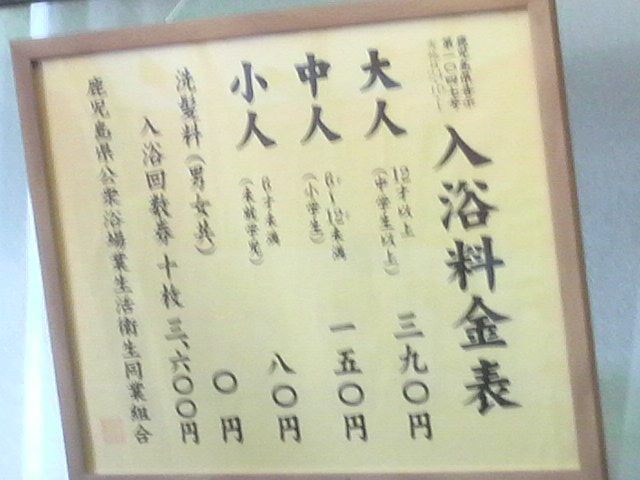 鹿児島県告示
第一〇四七号
入浴料金表
大人 12才以上 (中学生以上) 三九〇円
中人 6〜12未満 (小学生) 一五〇円
小人 6才未満 (未就学児) 八〇円
洗髪料(男女共) 〇円
入浴回数券 十枚 三、六〇〇円
鹿児島県公衆浴場業生活衛生同業組合